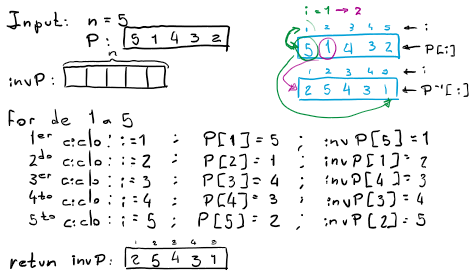 Input: n = 5
P: 5 1 4 3 2
n
invP:
i = 1 → 2
1 2 3 4 5 ← i
5 1 4 3 2 ← P[i]
1 2 3 4 5 ← i
2 5 4 3 1 ← P⁻¹[i]
for de 1 a 5
1er ciclo: i=1 ; P[1]=5 ; invP[5]=1
2do ciclo: i=2 ; P[2]=1 ; invP[1]=2
3er ciclo: i=3 ; P[3]=4 ; invP[4]=3
4to ciclo: i=4 ; P[4]=3 ; invP[3]=4
5to ciclo: i=5 ; P[5]=2 ; invP[2]=5
1 2 3 4 5
retun invP: 2 5 4 3 1